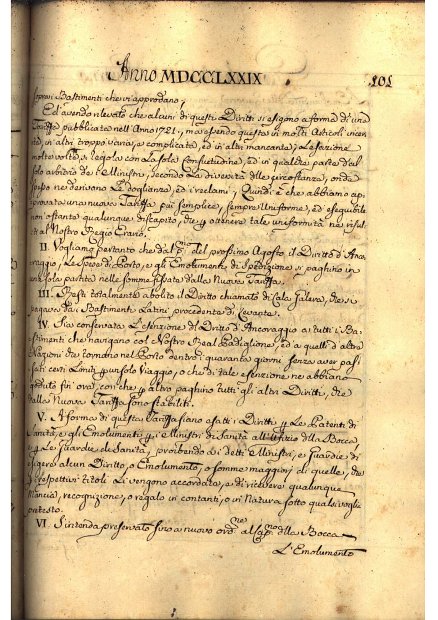 Anno MDCCLXXIX. 101
sopra i Bastimenti che vi approdano,
Ed avendo rilevato che alcuni di questi Diritti si esigono a forma di una
Tariffa pubblicata nell'Anno 1721, ma essendo questa in molti Articoli incer
ta, in altri troppo varia, e complicata, ed in altri mancante, l'esazione
molte volte si regola con la sola consuetudine, ed in qualche parte dal
solo arbitrio de Ministri, secondo la diversità delle circostanze, onde
spesso ne derivono le doglianze, ed i reclami; Quindi è che abbiamo ap
provata una nuova Tariffa più semplice, sempre uniforme, ed eseguibile
non ostante qualunque discapito, che per ottenere tale uniformità ne risul
ti al Nostro Regio Erario.
II. Vogliamo pertanto che dal pmo del prossimo Agosto il Diritto d'Anco
raggio, le Spese di Porto, e gli Emolumenti di Spedizione si paghino in
una sola partita nelle somme fissate dalla Nuova Tariffa.
III. Resti totalmente abolito il Diritto chiamato di Cala Galera, che si
pagava da i Bastimenti Latini procedenti di Levante.
IV. Sia conservata l'esenzione del Diritto d'Ancoraggio a tutti i Ba
stimenti che navigano col Nostro Real Padiglione, ed a quelli d'altre
Nazioni che tornano nel Porto dentro di quaranta giorni senza aver pas
sati certi Limiti per un solo Viaggio, o che di tale esenzione ne abbiano
goduto fin ora, con che per altro paghino tutti gli altri Diritti, che
dalla Nuova Tariffa sono stabiliti.
V. A forma di questa Tariffa siano esatti i Diritti per le Patenti di
Sanità, e gli Emolumenti per i Ministri di Sanità all'Ufizio della Bocca,
e per le Guardie di Sanità, proibendo a i detti Ministri, e Guardie di
esigere alcun Diritto, o Emolumento, o somme maggiori di quelle, che
a respettivi titoli li vengono accordate, e di ricevere qualunque
Mancia, recognizione, o regalo in contanti, o in Natura sotto qualsivoglia
pretesto.
VI. S'intenda preservato fino a nuovo ordne al Capno della Bocca
L'Emolumento